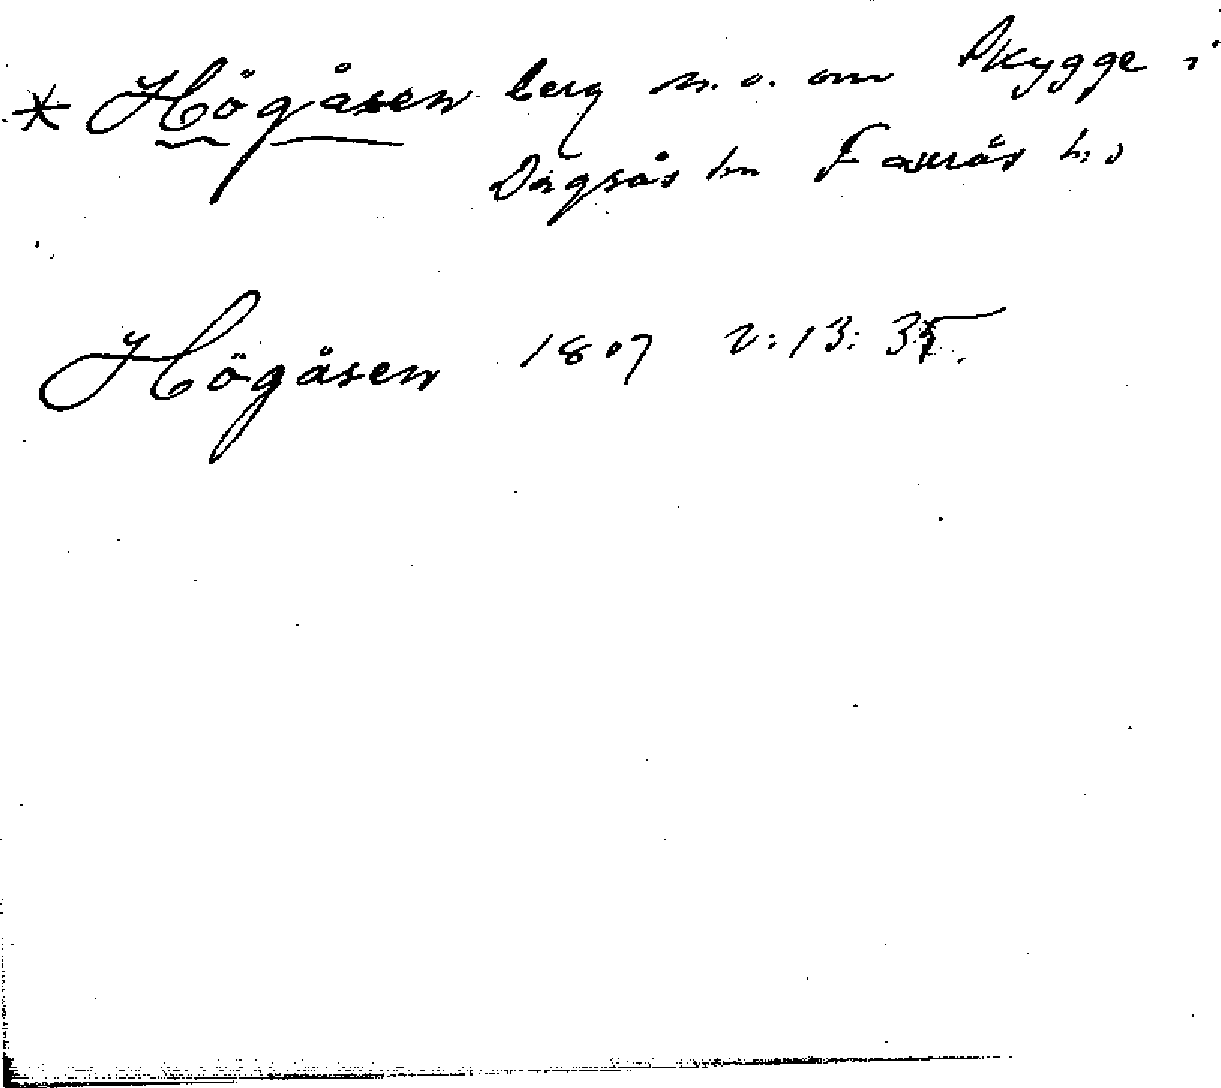 * Högåsen berg n.o. om Skygge i
Dagsås sn Faurås h:d
Högåsen 1807 2:13:35.